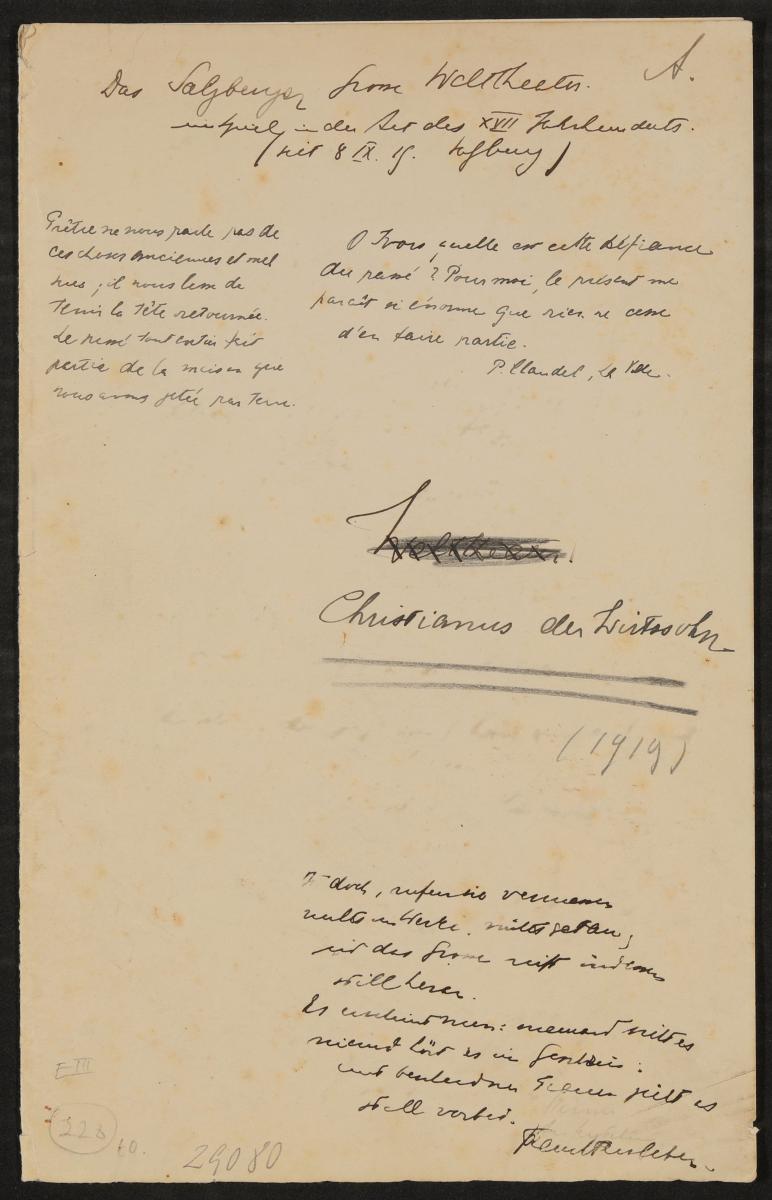 A.
Das Salzburger Grosse Welttheater.
ein Spiel in der Art des XVII Jahrhunderts.
(seit 8 IX. 19. Salzburg)
Prêtre ne nous parle pas de
ces choses anciennes et
; il nous de
tenir la tête retournée.
Le passé tout entier fait
partie de la maison que
nous avons jetée par terre.
O Ivors, quelle est cette défiance
du passé? Pour moi, le présent me
paraît si énorme que rien ne cesse
d'en faire partie.
P. Claudel, La Ville.
Christianus der Wirtssohn
(1919)
doch, rufen sie vermessen
nichts im Werke, nichts getan,
und das Grosse reift indessen
still heran.
Es erscheint nun: niemand sieht es
niemand hört es im Geschrei:
mit bescheidner Trauer zieht es
still vorbei.
Feuchtersleben.
E III
228
10.
29080